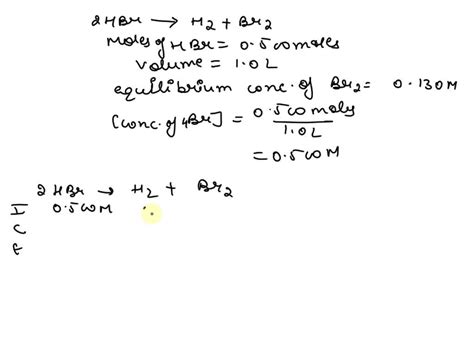 2HBr → H2 + Br2
moles of HBr = 0.500 moles
volume = 1.0 L
equilibrium conc. of Br2 = 0.130M
[conc. of HBr] = 0.500 moles
1.0L
= 0.500M
2HBr → H2 + Br2
I 0.500M
C
E